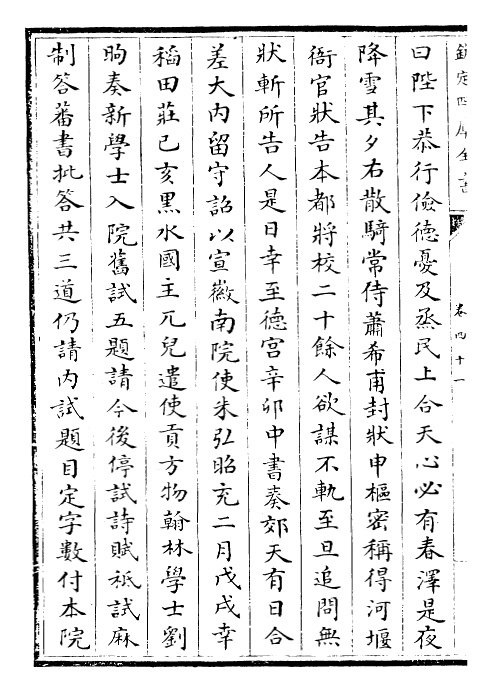 欽定四庫全書
卷四十一
曰陛下恭行儉德憂及烝民上合天心必有春澤是夜
降雪其夕右散騎常侍蕭希甫封狀申樞密稱得河堰
衙官狀告本都將校二十餘人欲謀不軌至旦追問無
狀斬所告人是日幸至德宫辛卯中書奏郊天有日合
差大内留守詔以宣徽南院使朱弘昭充二月戊戌幸
稻田莊己亥黒水國主兀兒遣使貢方物翰林學士劉
昫奏新學士入院舊試五題請今後停試詩賦祗試麻
制答蕃書批答共三道仍請内試題目定字數付本院